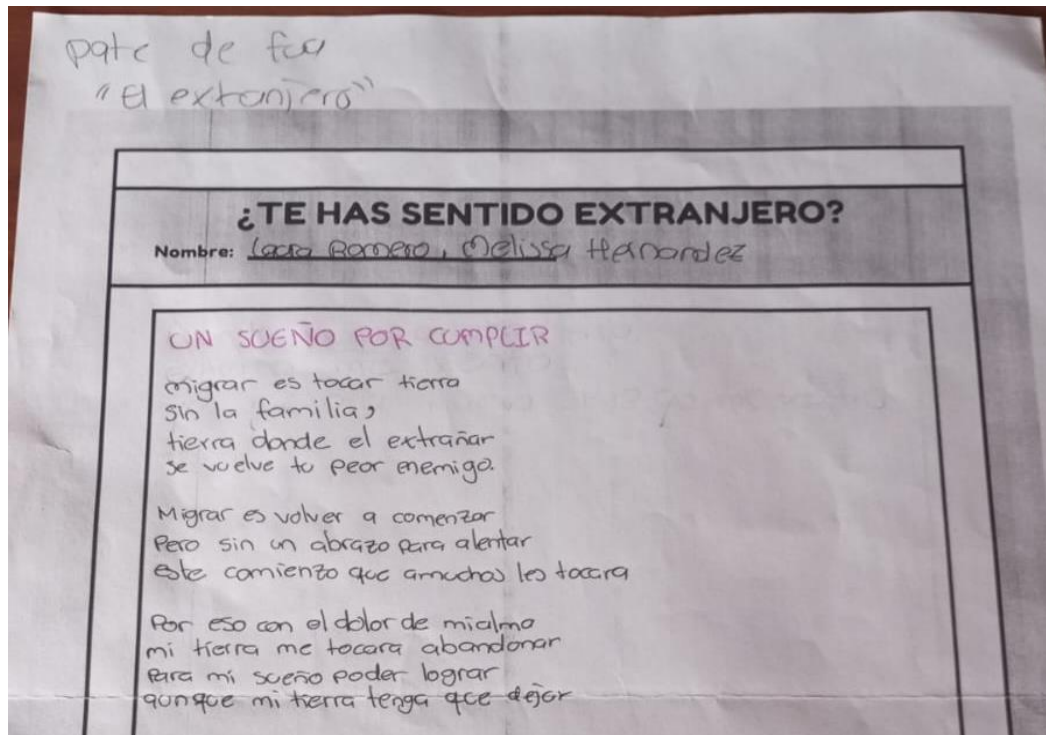 pate de fua
"El extranjero"
¿TE HAS SENTIDO EXTRANJERO?
Nombre: Laura Romero, Melissa Hernandez
UN SUEÑO POR CUMPLIR
migrar es tocar tierra
sin la familia,
tierra donde el extrañar
se vuelve tu peor enemigo.
Migrar es volver a comenzar
Pero sin un abrazo para alentar
este comienzo que amuchos les tocara
Por eso con el dolor de mialma
mi tierra me tocara abandonar
Para mi sueño poder lograr
aunque mi tierra tenga que dejar